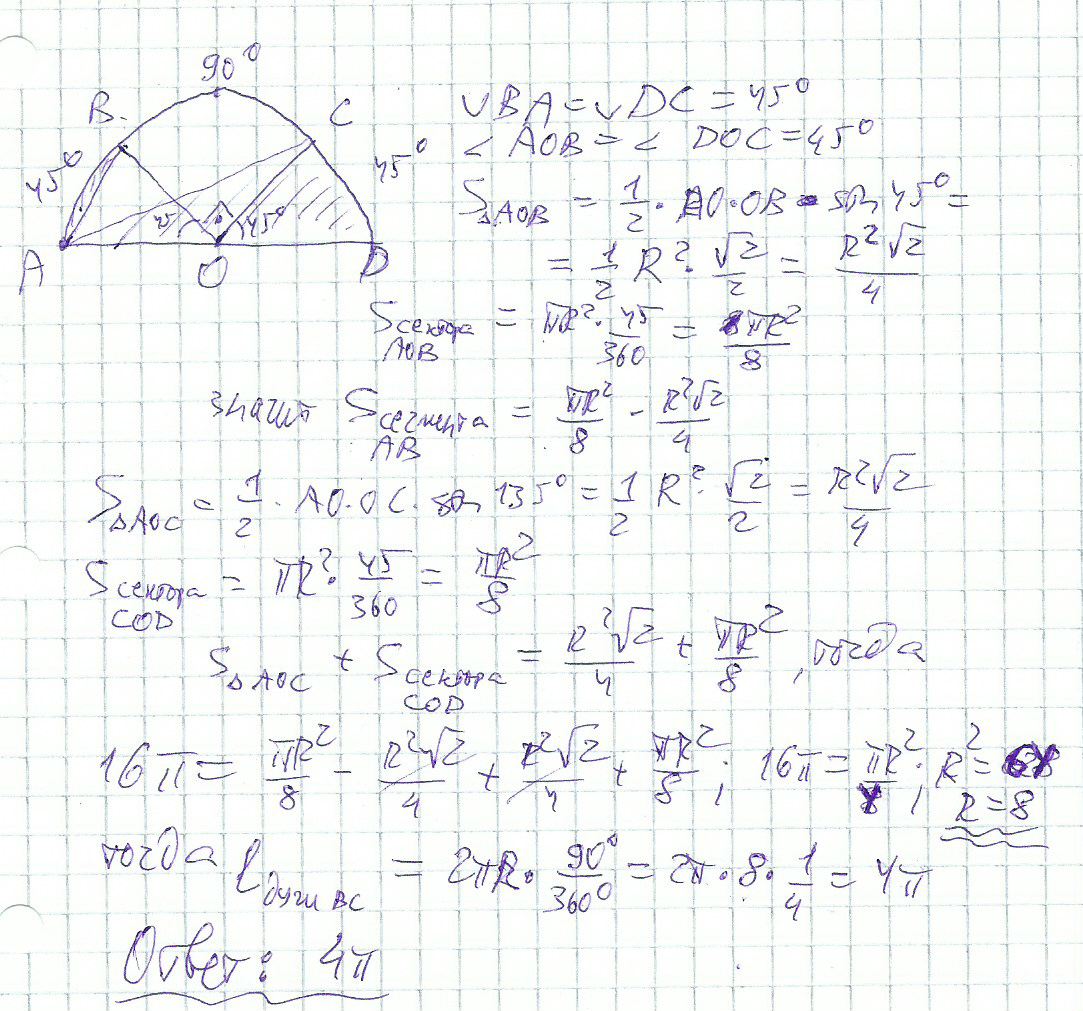 90°
B
C
45°
45°
45
45°
A
O
D
∪BA = ∪DC = 45°
< AOB = < DOC = 45°
S△AOB = 1/2 · AO · OB · sin 45° =
= 1/2 R² · √2/2 = R²√2/4
Sсектора AOB = πR² · 45/360 = πR²/8
значит Sсегмента AB = πR²/8 - R²√2/4
S△AOC = 1/2 · AO · OC · sin 135° = 1/2 R² · √2/2 = R²√2/4
Sсектора COD = πR² · 45/360 = πR²/8
S△AOC + Sсектора COD = R²√2/4 + πR²/8, тогда
16π = πR²/8 - R²√2/4 + R²√2/4 + πR²/8; 16π = πR²/4; R² = 64
R = 8
тогда lдуги BC = 2πR · 90°/360° = 2π · 8 · 1/4 = 4π
Ответ: 4π